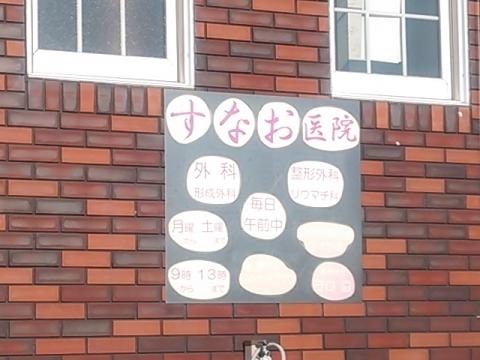 すなお医院
外科
形成外科
整形外科
リウマチ科
毎日
午前中
月曜 土曜
から まで
9時 13時
から まで